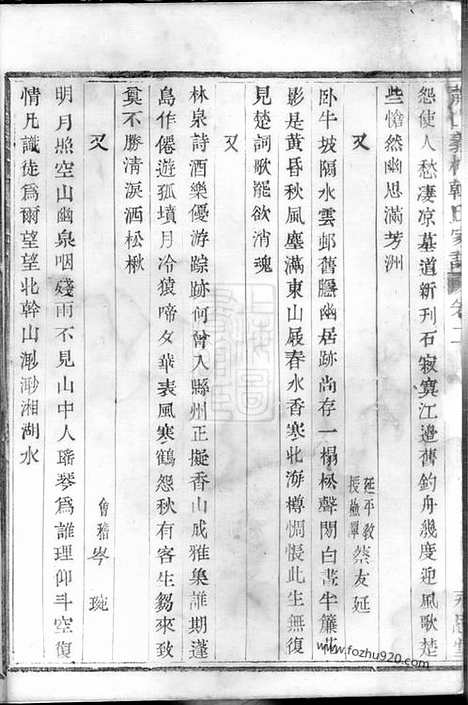 怨使人愁凄凉墓道新刊石寂寞江邉舊釣舟幾度迎風歌楚
些愴然幽思滿芳洲
又
延平教授蕭單蔡友延
卧牛坡隔水雲邨舊隱幽居跡尚存一榻松聲閒白晝半簾花
影是黄昏秋風塵滿東山屐春水香寒北海樽惆悵此生無復
見楚詞歌罷欲消魂
又
林泉詩酒樂優游踪跡何曾入縣州正擬香山成雅集誰期蓬
島作僊遊孤墳月冷猿啼夕華表風寒鶴怨秋有客生芻來致
奠不勝清淚洒松楸
又
會稽岑琬
明月照空山幽泉咽殘雨不見山中人瑤琴爲誰理仰斗空復
情凡識徒爲爾望望北幹山渺渺湘湖水
www.fozhu920.com